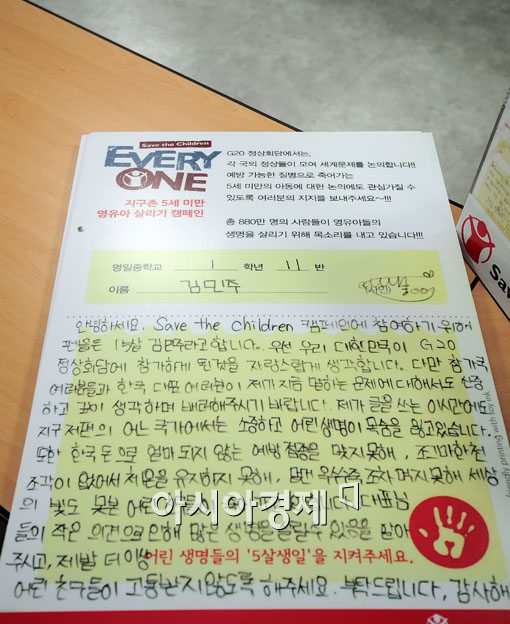 Save the Children
EVERY
ONE
지구촌 5세 미만
영유아 살리기 캠페인
G20 정상회담에서는,
각 국의 정상들이 모여 세계문제를 논의합니다!!
예방 가능한 질병으로 죽어가는
5세 미만의 아동에 대한 논의에도 관심가질 수
있도록 여러분의 지지를 보내주세요~!!!
총 880만 명의 사람들이 영유아들의
생명을 살리기 위해 목소리를 내고 있습니다!!!
명일중학교 1 학년 11 반
이름 김민주
안녕하세요, Save the children 캠페인에 참여하기 위해
펜을든 김민주라고합니다. 우선 우리 대한민국이 G20
정상회담에 참가하게 된것을 자랑스럽게 생각합니다. 다만 참가국
여러분들과 한국 대표 여러분이 제가 지금 말하는 문제에 대해서도 신중
하고 깊이 생각하며 배려해주시기 바랍니다. 제가 글을 쓰는 이시간에도
지구 저편의 어느 국가에서는 소중하고 어린생명이 목숨을 잃고있습니다.
또한 한국 돈으로 얼마 되지 않는 예방접종을 맞지못해, 조그마한 천
조각이 없어서 체온을 유지하지 못해, 조차 먹지못해 세상
의 빛도 못본 어린 대표님
들의 작은 의견으로 인해 많은 생명을 살릴수 있음을 알아
주시고, 제발 더 이상
어린 생명들의 '5살생일'을 지켜주세요.
어린 친구들이 고통받지 않도록 해주세요. 부탁드립니다, 감사해
아시아경제
Sav
printing with soy ink